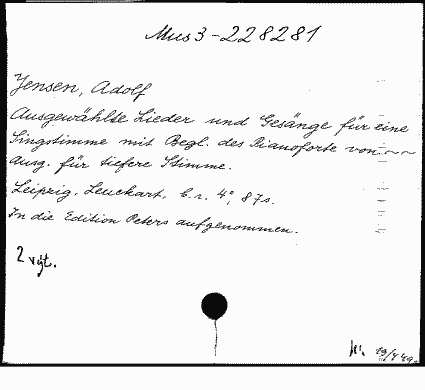 Mus3-228281
Jensen, Adolf
Ausgewählte Lieder und Gesänge für eine
Singstimme mit Begl. des Pianoforte von ~~
Ausg. für tiefere Stimme.
Leipzig, Leuckart, 4°, 87s.
In die Edition Peters aufgenommen.
2